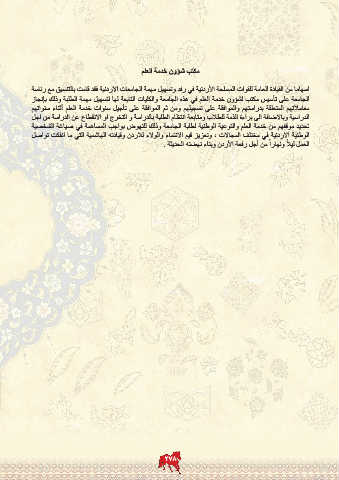 مكتب شؤون خدمة العلم
اسهاما من القيادة العامة للقوات المسلحة الأردنية في رفد وتسهيل مهمة الجامعات الاردنية فقد قامت بالتنسيق مع رئاسة
الجامعة على تأسيس مكتب لشؤون خدمة العلم في هذه الجامعة والكليات التابعة لها لتسهيل مهمة الطلبة وذلك بإنجاز
معاملاتهم المتعلقة بدراستهم والموافقة على تسجيلهم ومن ثم الموافقة على تأجيل سنوات خدمة العلم أثناء سنواتهم
الدراسية وبالاضافة الى براءة الذمة للطلاب ومتابعة انتظام الطلبة بالدراسة و التخرج او الانقطاع عن الدراسة من اجل
تحديد موقفهم من خدمة العلم والتوعية الوطنية لطلبة الجامعة وذلك للنهوض بواجب المساهمة في صياغة الشخصية
الوطنية الاردنية في مختلف المجالات ، وتعزيز قيم الانتماء والولاء للاردن وقيادته الهاشمية التي ما انفكت تواصل
العمل ليلاً ونهاراً من أجل رفعة الأردن وبناء نهضته الحديثة .
٢٧٨